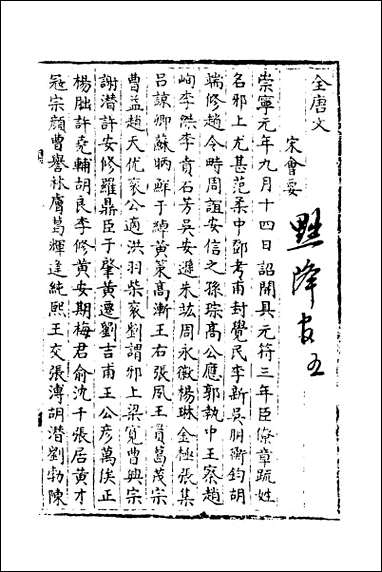 全唐文
宋會要
黜降官五
崇寧元年九月十四日詔開具元符三年臣僚章疏姓
名邪上尤甚范柔中鄧考甫封覺民李新吳朋衛鈞胡
端修趙令時周誼安信之孫琮高公應郭執中王察趙
峋李傑李賁石芳吳安遜朱竑周永徽楊琳金極張集
呂諒卿蘇昞鮮于綽黃策高漸王右張夙王貢葛茂宗
曹益趙天佐衮公適洪羽柴衮劉謂邪上梁寬曹興宗
謝潜許安修羅鼎臣于肇黃遷劉吉甫王公彥萬俟正
楊朏許堯輔胡良李修黃安期梅君俞沈千張居黃才
冦宗顏曹譽林膚葛輝逢純熙王交張溥胡潜劉勃陳